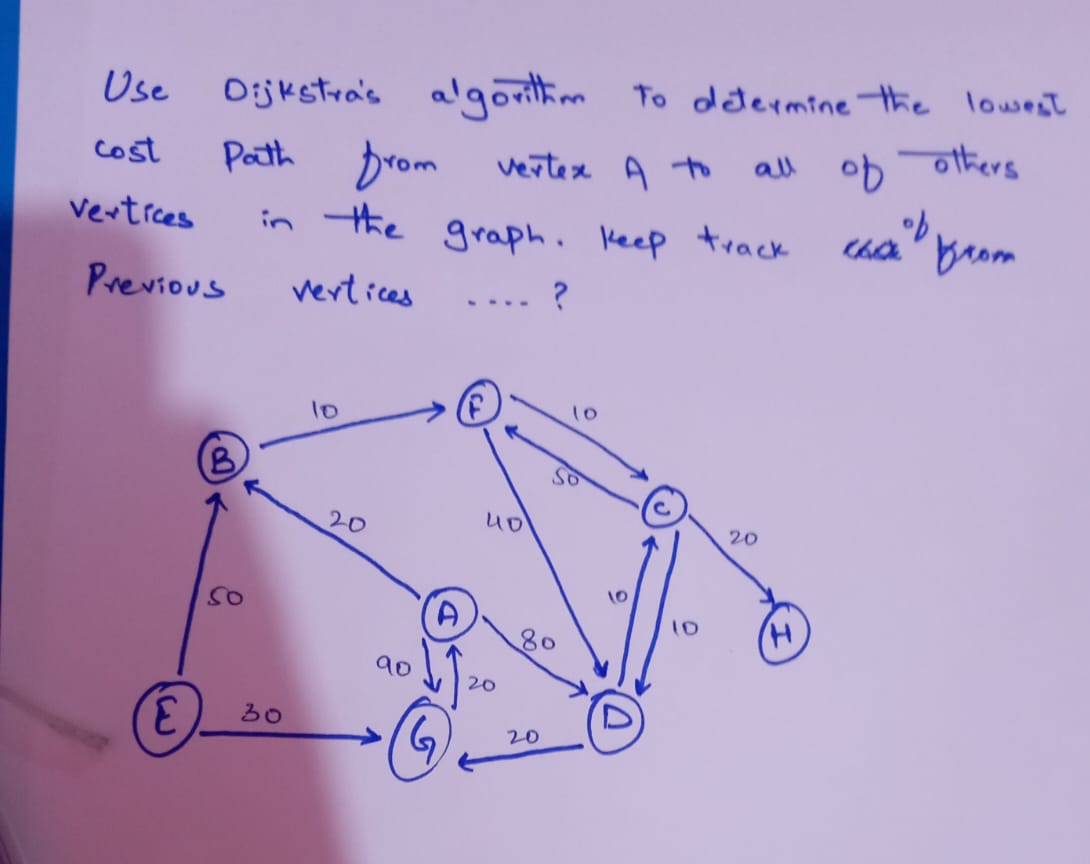 Use Dijkstra's algorithm to determine the lowest
cost path from vertex A to all of others
vertices in the graph. keep track of from
Previous vertices .... ?
10
F
10
B
50
C
20
40
20
50
10
A
80
10
H
90
20
E
30
G
D
20